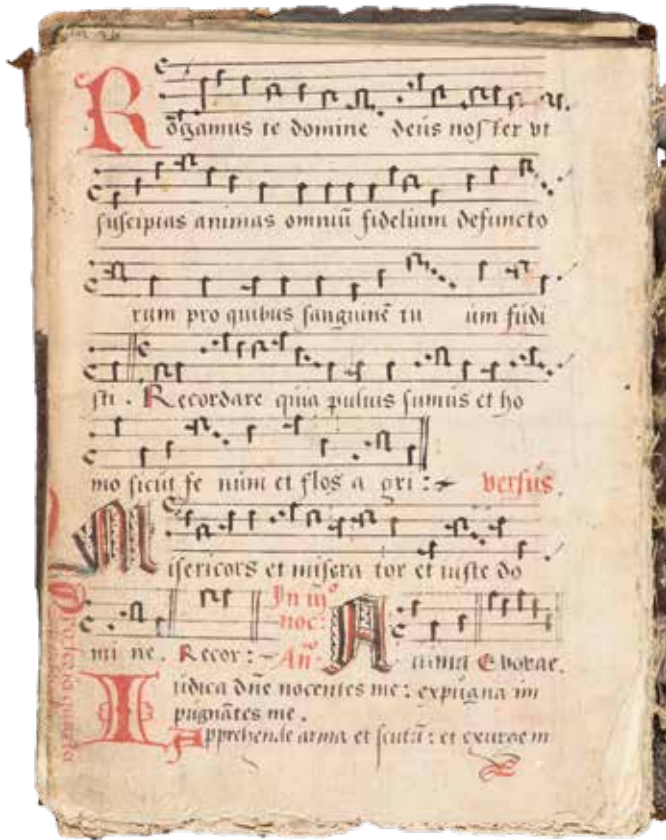 Rõgamus te domine deus noster vt
suscipias animas omniũ fidelium defuncto
rum pro quibus sanguinẽ tu um fudi
sti . Recordare quia puluis sumus et ho
mo sicut fe num et flos a gri : versus.
Misericors et misera tor et iuste do
mi ne. Recor : In iijº noc : Añ. A uima Evovae.
Iudica dñe nocentes me : expugna im
pugnãtes me.
Apprehende arma et scutũ : et exurge in